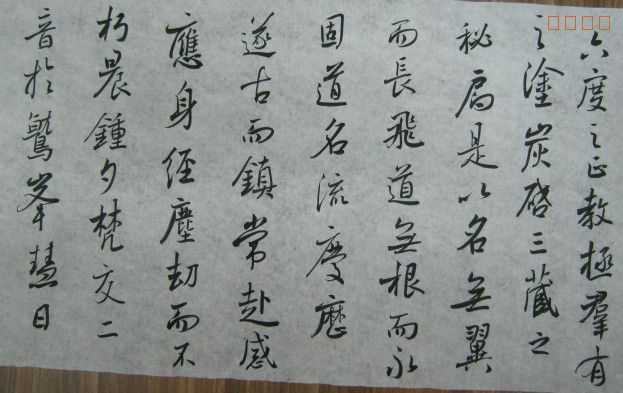 六度之正教拯羣有
之塗炭啓三藏之
秘扃是以名無翼
而長飛道無根而永
固道名流慶歷
遂古而鎮常赴感
應身經塵劫而不
朽晨鍾夕梵交二
音於鷲峯慧日